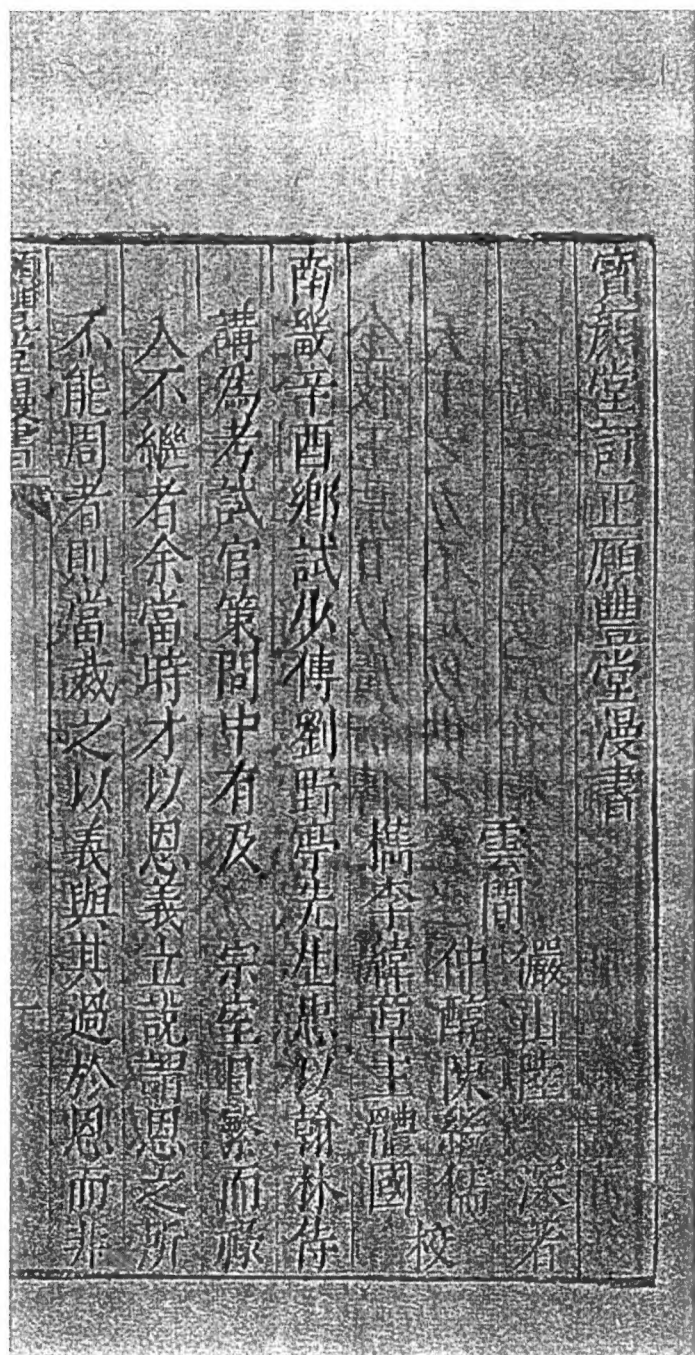 寶顏堂訂正願豐堂漫書
雲間
儼山陸 深著
仲醇陳繼儒
檇李緯草王體國
校
南畿辛酉鄉試少傅劉野亭先生忠以翰林侍
講爲考試官策問中有及 宗室日繁而祿
入不繼者余當時才以恩義立說謂恩之所
不能周者則當裁之以義與其過於恩而非
願豐堂漫書
一